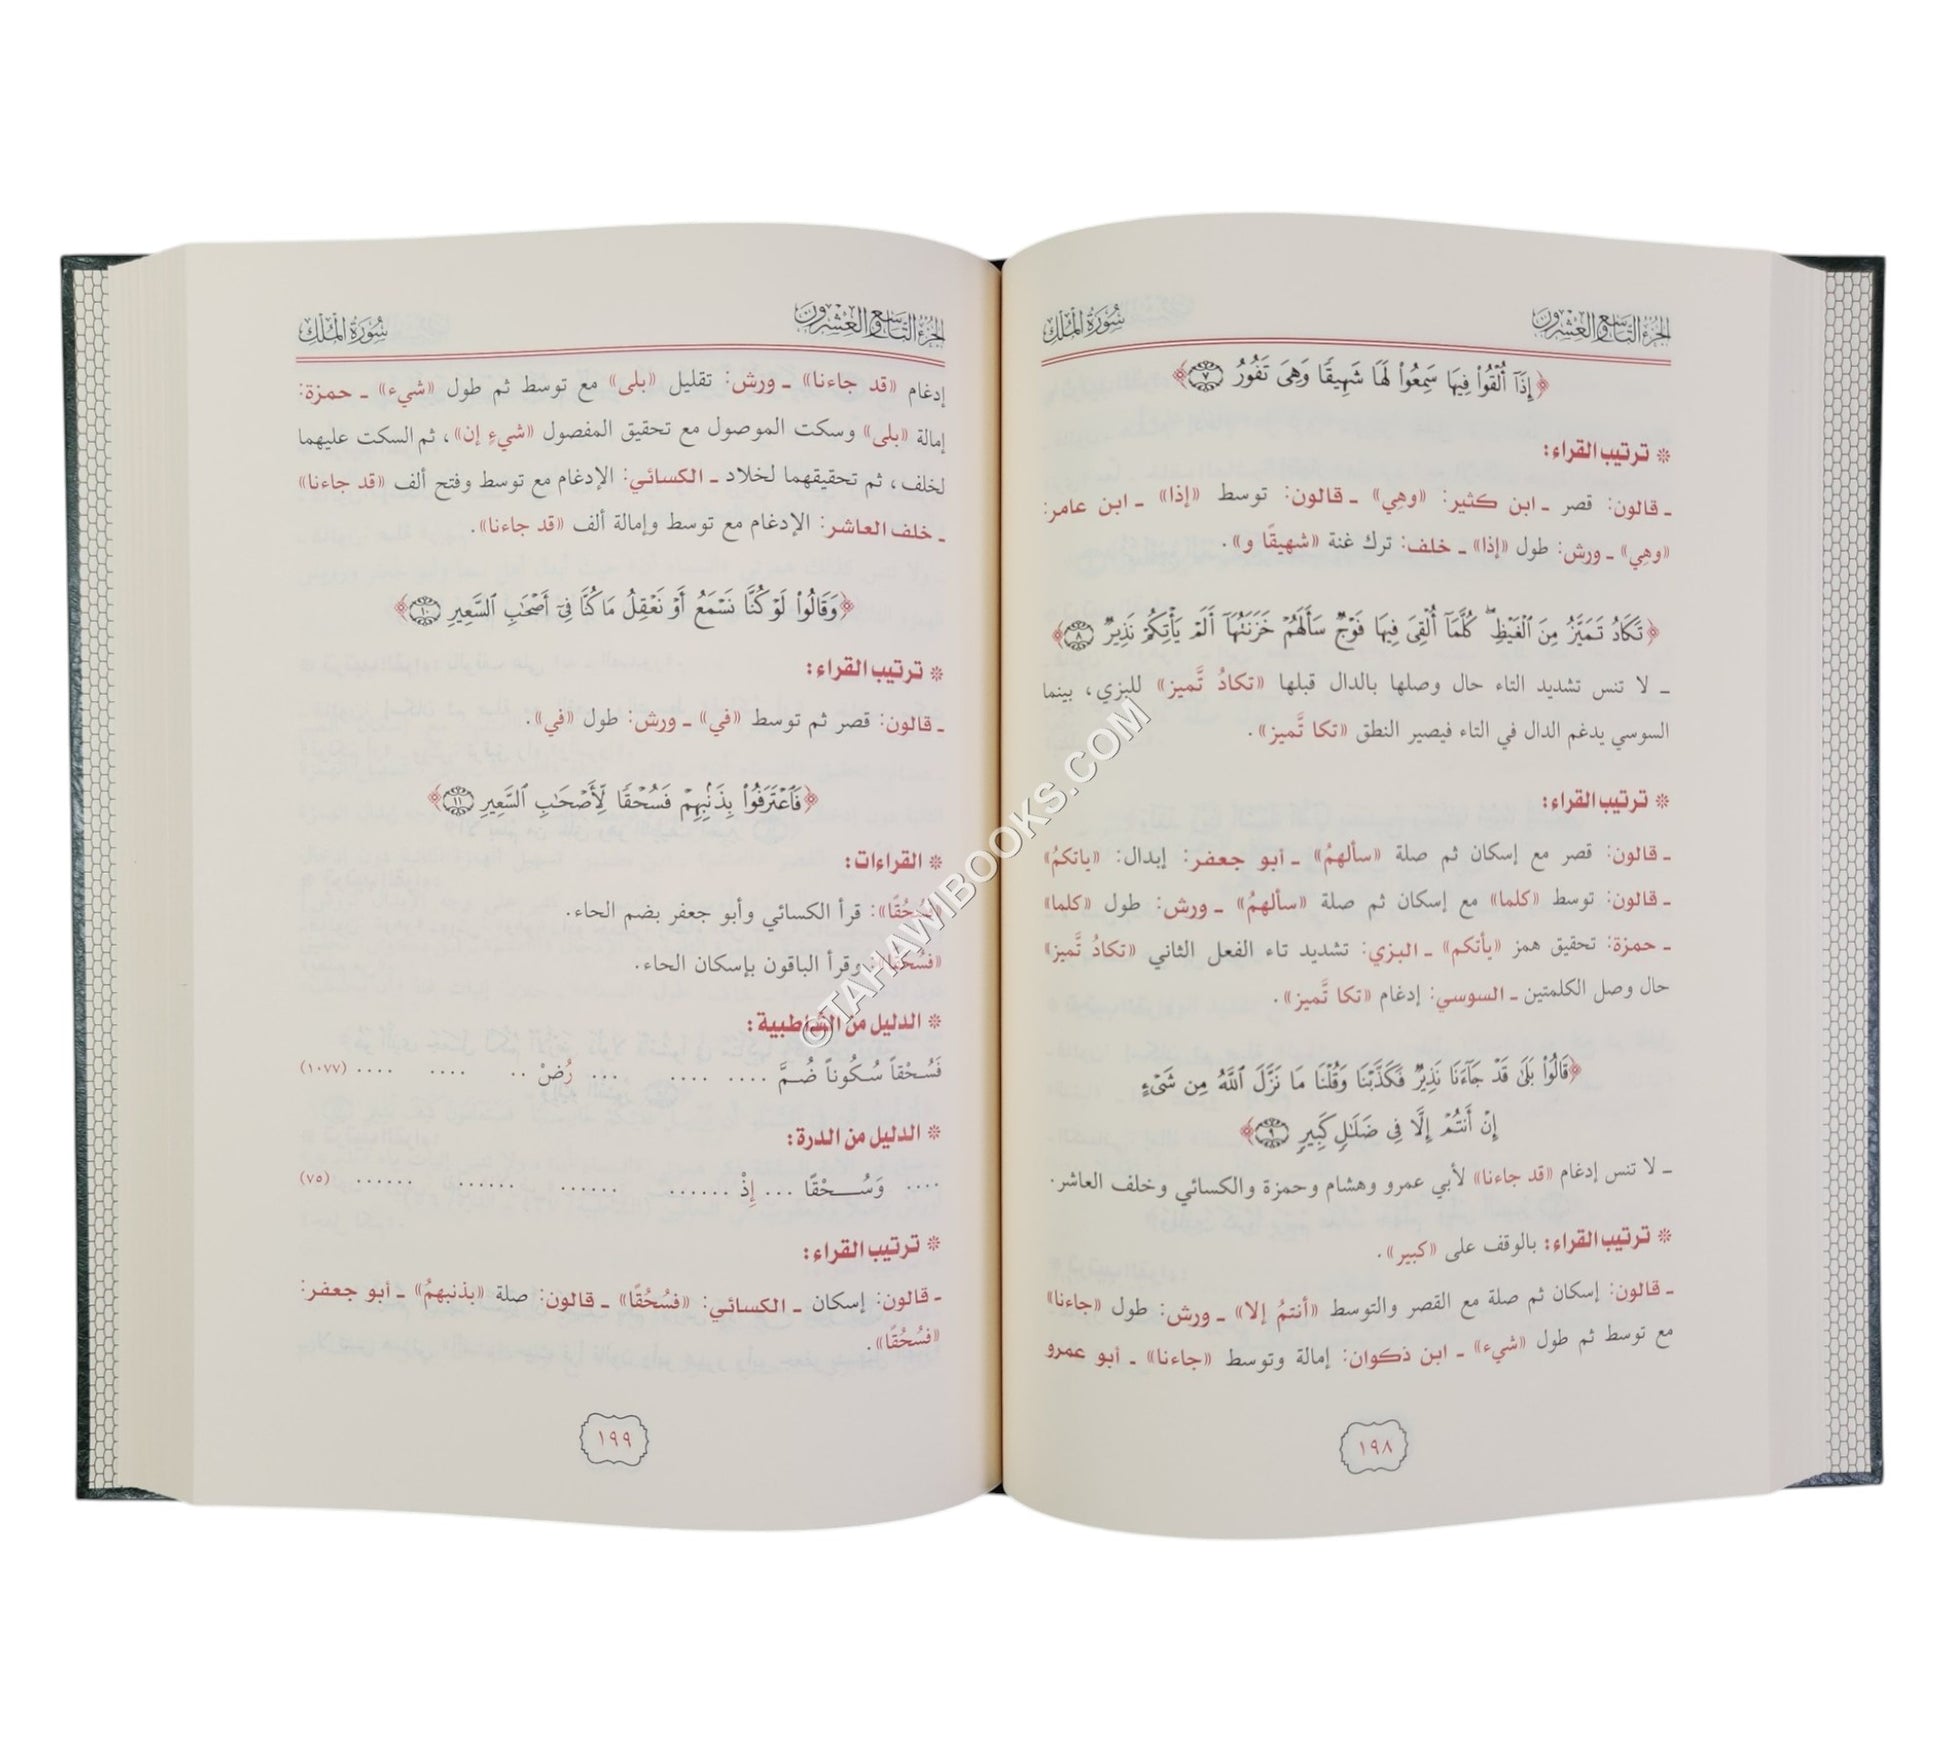 الجزء التاسع والعشرون
سورة الملك
﴿إِذَآ أُلْقُوا۟ فِيهَا سَمِعُوا۟ لَهَا شَهِيقًا وَهِىَ تَفُورُ ٧﴾
* ترتيب القراء:
ـ قالون: قصر ـ ابن كثير: «وهِي» ـ قالون: توسط «إذا» ـ ابن عامر:
«وهِي» ـ ورش: طول «إذا» ـ خلف: ترك غنة «شهيقًا و».
﴿تَكَادُ تَمَيَّزُ مِنَ ٱلْغَيْظِ ۖ كُلَّمَآ أُلْقِىَ فِيهَا فَوْجٌ سَأَلَهُمْ خَزَنَتُهَآ أَلَمْ يَأْتِكُمْ نَذِيرٌ ٨﴾
ـ لا تنس تشديد التاء حال وصلها بالدال قبلها «تكادُ تَّميز» للبزي، بينما
السوسي يدغم الدال في التاء فيصير النطق «تكا تَّميز».
* ترتيب القراء:
ـ قالون: قصر مع إسكان ثم صلة «سألهمُ» ـ أبو جعفر: إبدال: «ياتكمُ»
ـ قالون: توسط «كلما» مع إسكان ثم صلة «سألهمُ» ـ ورش: طول «كلما»
ـ حمزة: تحقيق همز «يأتكم» ـ البزي: تشديد تاء الفعل الثاني «تكادُ تَّميز»
حال وصل الكلمتين ـ السوسي: إدغام «تكا تَّميز».
﴿قَالُوا۟ بَلَىٰ قَدْ جَآءَنَا نَذِيرٌ فَكَذَّبْنَا وَقُلْنَا مَا نَزَّلَ ٱللَّهُ مِن شَىْءٍ
إِنْ أَنتُمْ إِلَّا فِى ضَلَـٰلٍ كَبِيرٍ ٩﴾
ـ لا تنس إدغام «قد جاءنا» لأبي عمرو وهشام وحمزة والكسائي وخلف العاشر.
* ترتيب القراء: بالوقف على «كبير».
ـ قالون: إسكان ثم صلة مع القصر والتوسط «أنتمُ إلا» ـ ورش: طول «جاءنا»
مع توسط ثم طول «شيء» ـ ابن ذكوان: إمالة وتوسط «جاءنا» ـ أبو عمرو
١٩٨
الجزء التاسع والعشرون
سورة الملك
إدغام «قد جاءنا» ـ ورش: تقليل «بلى» مع توسط ثم طول «شيء» ـ حمزة:
إمالة «بلى» وسكت الموصول مع تحقيق المفصول «شيءٍ إن»، ثم السكت عليهما
لخلف، ثم تحقيقهما لخلاد ـ الكسائي: الإدغام مع توسط وفتح ألف «قد جاءنا»
ـ خلف العاشر: الإدغام مع توسط وإمالة ألف «قد جاءنا».
﴿وَقَالُوا۟ لَوْ كُنَّا نَسْمَعُ أَوْ نَعْقِلُ مَا كُنَّا فِىٓ أَصْحَـٰبِ ٱلسَّعِيرِ ١٠﴾
* ترتيب القراء:
ـ قالون: قصر ثم توسط «في» ـ ورش: طول «في».
﴿فَٱعْتَرَفُوا۟ بِذَنۢبِهِمْ فَسُحْقًا لِّأَصْحَـٰبِ ٱلسَّعِيرِ ١١﴾
* القراءات:
«فسُحُقًا»: قرأ الكسائي وأبو جعفر بضم الحاء.
«فسُحْقًا»: وقرأ الباقون بإسكان الحاء.
* الدليل من الشاطبية:
فَسُحْقاً سُكُوناً ضُمَّ .... .... ... رُضْ .. .... .... (١٠٧٧)
* الدليل من الدرة:
.... وَسُحْقًا ... إِذْ ...... ...... ...... ...... (٧٥)
* ترتيب القراء:
ـ قالون: إسكان ـ الكسائي: «فسُحُقًا» ـ قالون: صلة «بذنبهمُ» ـ أبو جعفر:
«فسُحُقًا».
١٩٩
©TAHAWIBOOKS.COM